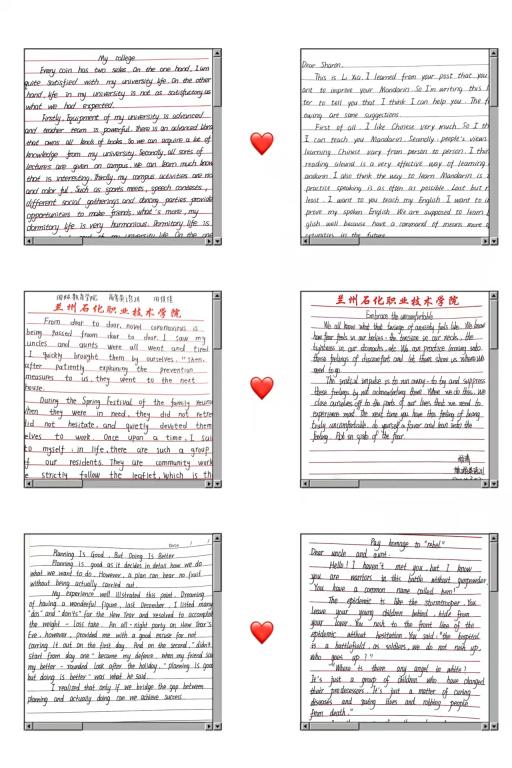 My college
Every coin has two sides. On the one hand, I am
quite satisfied with my university life. On the other
hand, life in my university is not as satisfactory as
what we had expected.
Firstly, Equipment of my university is advanced
and teacher team is powerful. There is an advanced libra
that owns all kinds of books. So we can acquire a lot of
knowledge from my university. Secondly, all sorts of
lectures are given on campus. We can learn much know
that is interesting. Thirdly, my campus activities are rich
and color ful. Such as sports meets, speech contests,
different social gatherings and dancing parties provide
opportunities to make friends. what's more, my
dormitory life is very harmonious. Dormitory life is
Dear Sharon,
This is Li Xia. I learned from your post that you
ant to improve your Mandarin. So I'm writing this l
ter to tell you that I think I can help you. The f
owing are some suggestions.
First of all, I like Chinese very much. So I th
I can teach you Mandarin. Secondly, people's views
learning Chinese vary from person to person. I thin
reading aloud is a very effective way of learning
andarin. I also think the way to learn Mandarin is
practise speaking is as often as possible. Last but n
least, I want to you teach my English. I want to i
prove my spoken English. We are supposed to learn
glish well because have a command of means more
ortunities in the future.
兰州石化职业技术学院
From door to door, novel coronavirus is
being passed from door to door. I saw my
uncles and aunts were all went and tired
I quickly brought them by ourselves. "Then,
after patiently explaining the prevention
measures to us, they went to the next
house.
During the Spring Festival of the family reuni
when they were in need, they did not retre
did not hesitate, and quietly devoted them
elves to work. Once upon a time, I said
to myself, in life, there are such a group
of our residents. They are community work
e strictly follow the leaflet, which is th
兰州石化职业技术学院
Embrace the uncomfortable
We all know what that twinge of anxiety feels like. We know
how fear feels in our bodies: the tension in our necks, the
tightness in our stomachs, etc. We can practice leaning into
these feelings of discomfort and let them show us where we
need to go.
The initial impulse is to run away - to try and suppress
these feelings by not acknowledging them. When we do this, we
close ourselves off to the parts of our lives that we need to
experience most. The next time you have this feeling of being
truly uncomfortable, do yourself a favor and lean into the
feeling. Act in spite of the fear.
Planning Is Good, But Doing Is Better
Planning is good as it decides in detail how we do
what we want to do. However, a plan can bear no fruit
without being actually carried out.
My experience well illustrated this point. Dreaming
of having a wonderful figure, last December, I listed many
"dos" and "don'ts" for the New Year and resolved to accomplish
the weight - loss take. An all - night party on New Year's
Eve, however, provided me with a good excuse for not
carring it out on the first day. And on the second, "didn't
start from day one" became my defence when my friend saw
my better - rounded look after the holiday. "Planning is good
but doing is better" was what he said.
I realized that only if we bridge the gap between
planning and actually doing can we achieve success.
Pay homage to "rebel"
Dear uncle and aunt:
Hello! I haven't met you, but I know
you are warriors in this battle without gunpowder.
You have a common name called hero!
The epidemic is like the stormtrooper. You
leave your young children behind, hide from
your lover. You rush to the front line of the
epidemic without hesitation. You said, "the hospital
is a battlefield, as soldiers, we do not rush up,
who goes up?"
Where is there any angel in white?
It's just a group of children who have changed
their predecessors. It's just a matter of curing
diseases and saving lives and robbing people
from death."